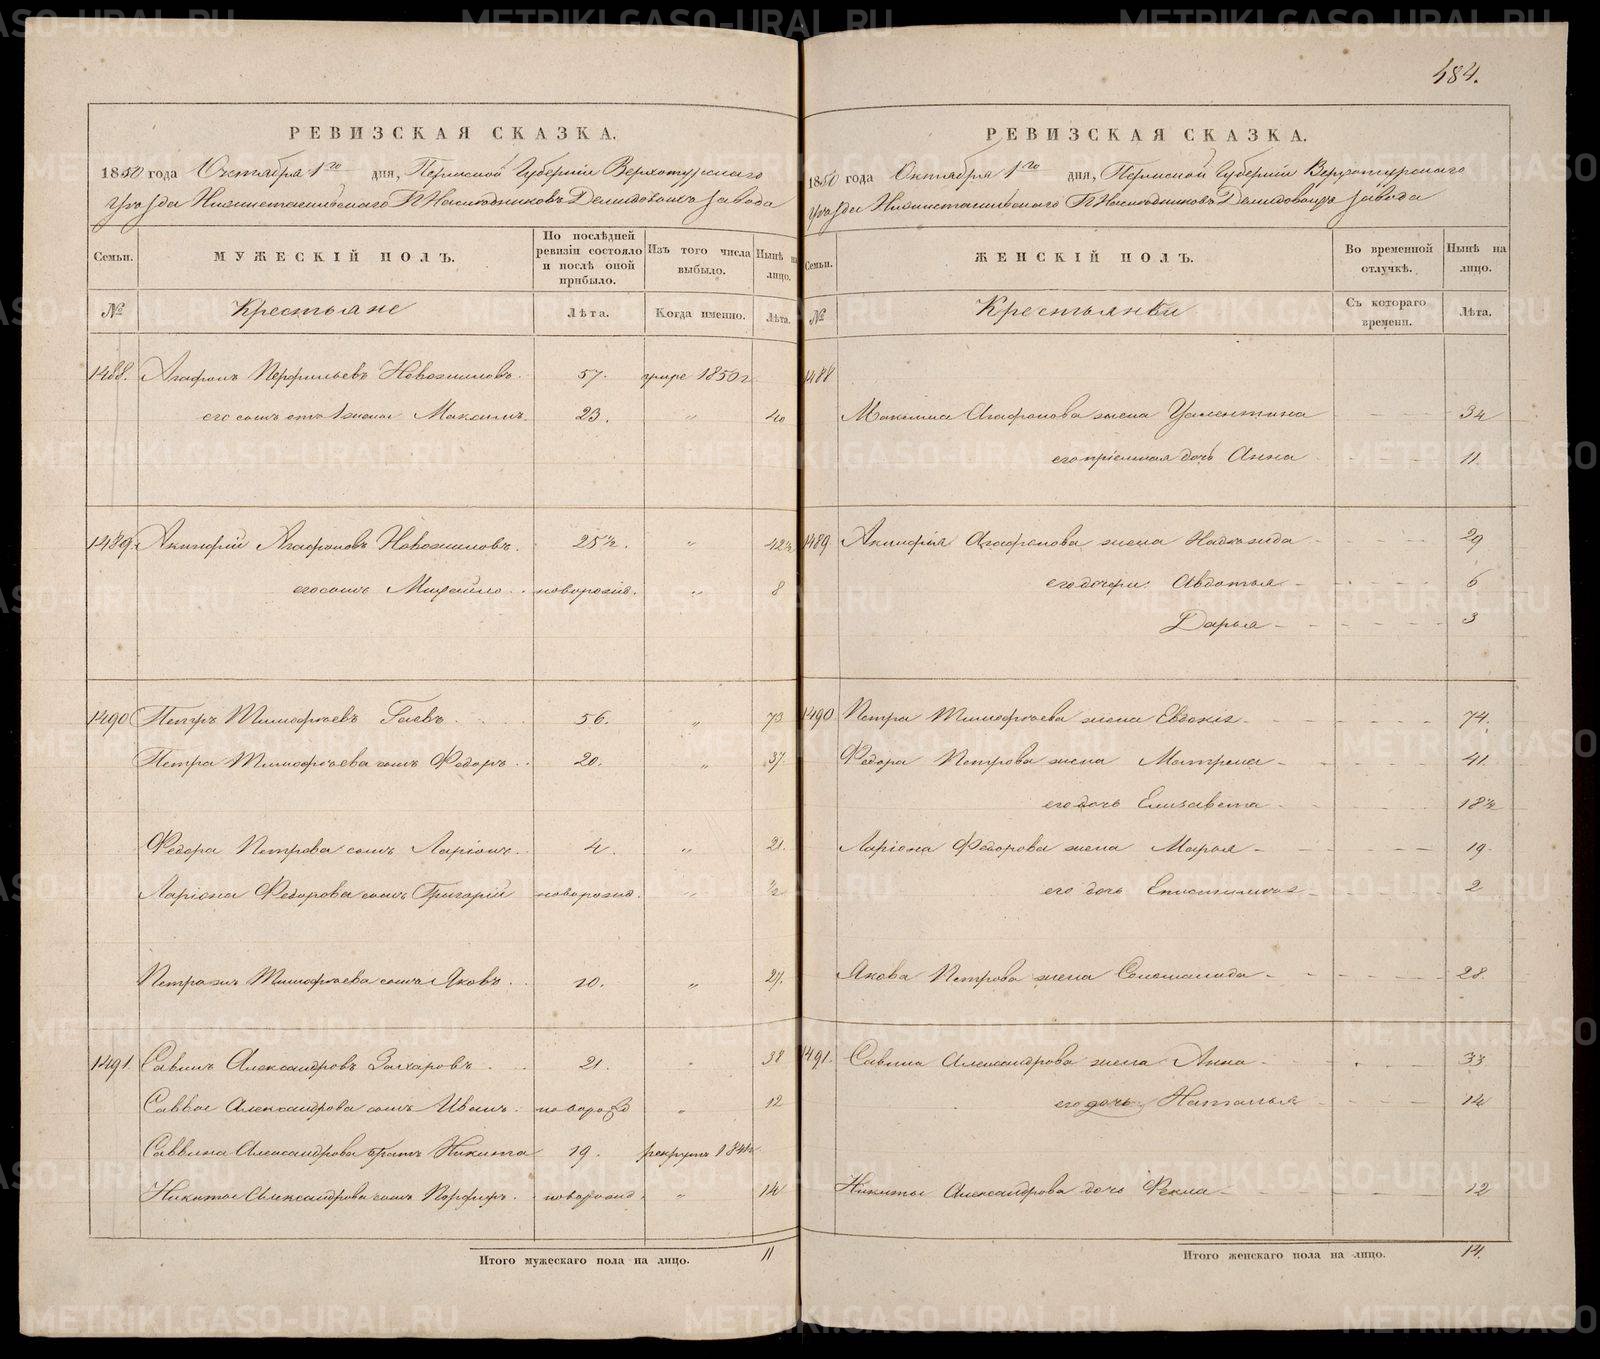 484.
РЕВИЗСКАЯ СКАЗКА.
1850 года Октября 1го дня, Пермской Губернiи Верхотурскаго
уѣзда Нижнетагильскаго Гг. Наслѣдниковъ Демидовыхъ завода
Семьи. МУЖЕСКIЙ ПОЛЪ. По послѣдней ревизiи состояло и послѣ оной прибыло. Изъ того числа выбыло. Нынѣ на лицо.
№ Крестьяне Лѣта. Когда именно. Лѣта.
1488. Агафонъ Перфильевъ Новожиловъ. 57. умре 1850 г.
его сынъ отъ 1 жены Максимъ. 23. " 40
1489. Акинфiй Агафоновъ Новожиловъ. 25½. " 42½
его сынъ Михайло новорожд. " 8
1490 Петръ Тимофѣевъ Гаевъ 56. " 73
Петра Тимофѣева сынъ Федоръ 20. " 37.
Федора Петрова сынъ Ларiонъ 4. " 21.
Ларiона Федорова сынъ Григорiй новорожд. " ½
Петра жъ Тимофѣева сынъ Яковъ. 10. " 27.
1491 Савинъ Александровъ Захаровъ 21. " 38
Саввы Александрова сынъ Иванъ новорожд " 12
Саввина Александрова братъ Никита 19. рекрутъ 1841г.
Никиты Александрова сынъ Порфиръ новорожд. " 14
Итого мужескаго пола на лицо. 11
РЕВИЗСКАЯ СКАЗКА.
1850 года Октября 1го дня, Пермской Губернiи Верхотурскаго
уѣзда Нижнетагильскаго Гг. Наслѣдниковъ Демидовыхъ завода
Семьи. ЖЕНСКIЙ ПОЛЪ. Во временной отлучкѣ. Нынѣ на лицо.
№ Крестьянки Съ котораго времени. Лѣта.
1488
Максима Агафонова жена Уалентина 34
его прiемная дочь Анна 11
1489 Акинфiя Агафонова жена Надежда 29
его дочери Авдотья 6
Дарья 3
1490 Петра Тимофѣева жена Евдокiя 74.
Федора Петрова жена Матрена 41.
его дочь Елизавета 18½
Ларiона Федорова жена Марья 19.
его дочь 2
Якова Петрова жена Соломанида 28
1491. Савина Александрова жена Анна 33
его дочь Наталья 14
Никиты Александрова дочь Фекла 12
Итого женскаго пола на лицо. 14.
METRIKI.GASO-URAL.RU